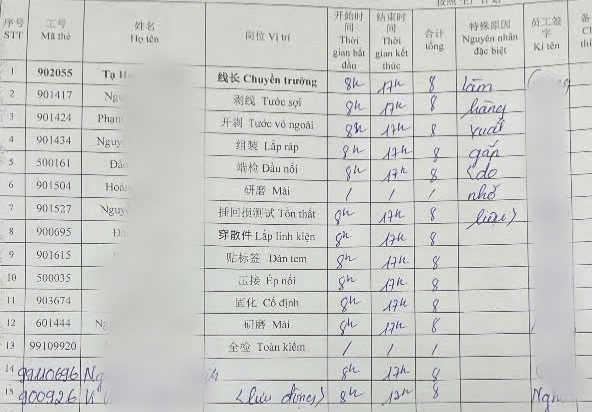 序号 STT 工号 Mã thẻ 姓名 Họ tên 岗位 Vị trí 开始时间 Thời gian bắt đầu 结束时间 Thời gian kết thúc 合计 tổng 特殊原因 Nguyên nhân đặc biệt 员工签字 Kí tên
1 902055 Tạ 线长 Chuyền trưởng 8h 17h 8 làm
2 901417 剥线 Tước sợi 8h 17h 8 hàng
3 901424 开剥 Tước vỏ ngoài 8h 17h 8 xuất
4 901434 组装 Lắp ráp 8h 17h 8 gấp
5 500161 端检 Đầu nối 8h 17h 8 (do
6 901504 研磨 Mài / / / nhỡ
7 901527 插回损测试 Tổn thất 8h 17h 8
8 900695 穿散件 Lắp linh kiện 8h 17h 8
9 901615 贴标签 Dán tem 8h 17h 8
10 500035 压接 Ép nối 8h 17h 8
11 903674 固化 Cố định 8h 17h 8
12 601444 研磨 Mài 8h 17h 8
13 99109920 全检 Toàn kiểm / / /
14 99110696 8h 17h 8
15 900926 8h 17h 8